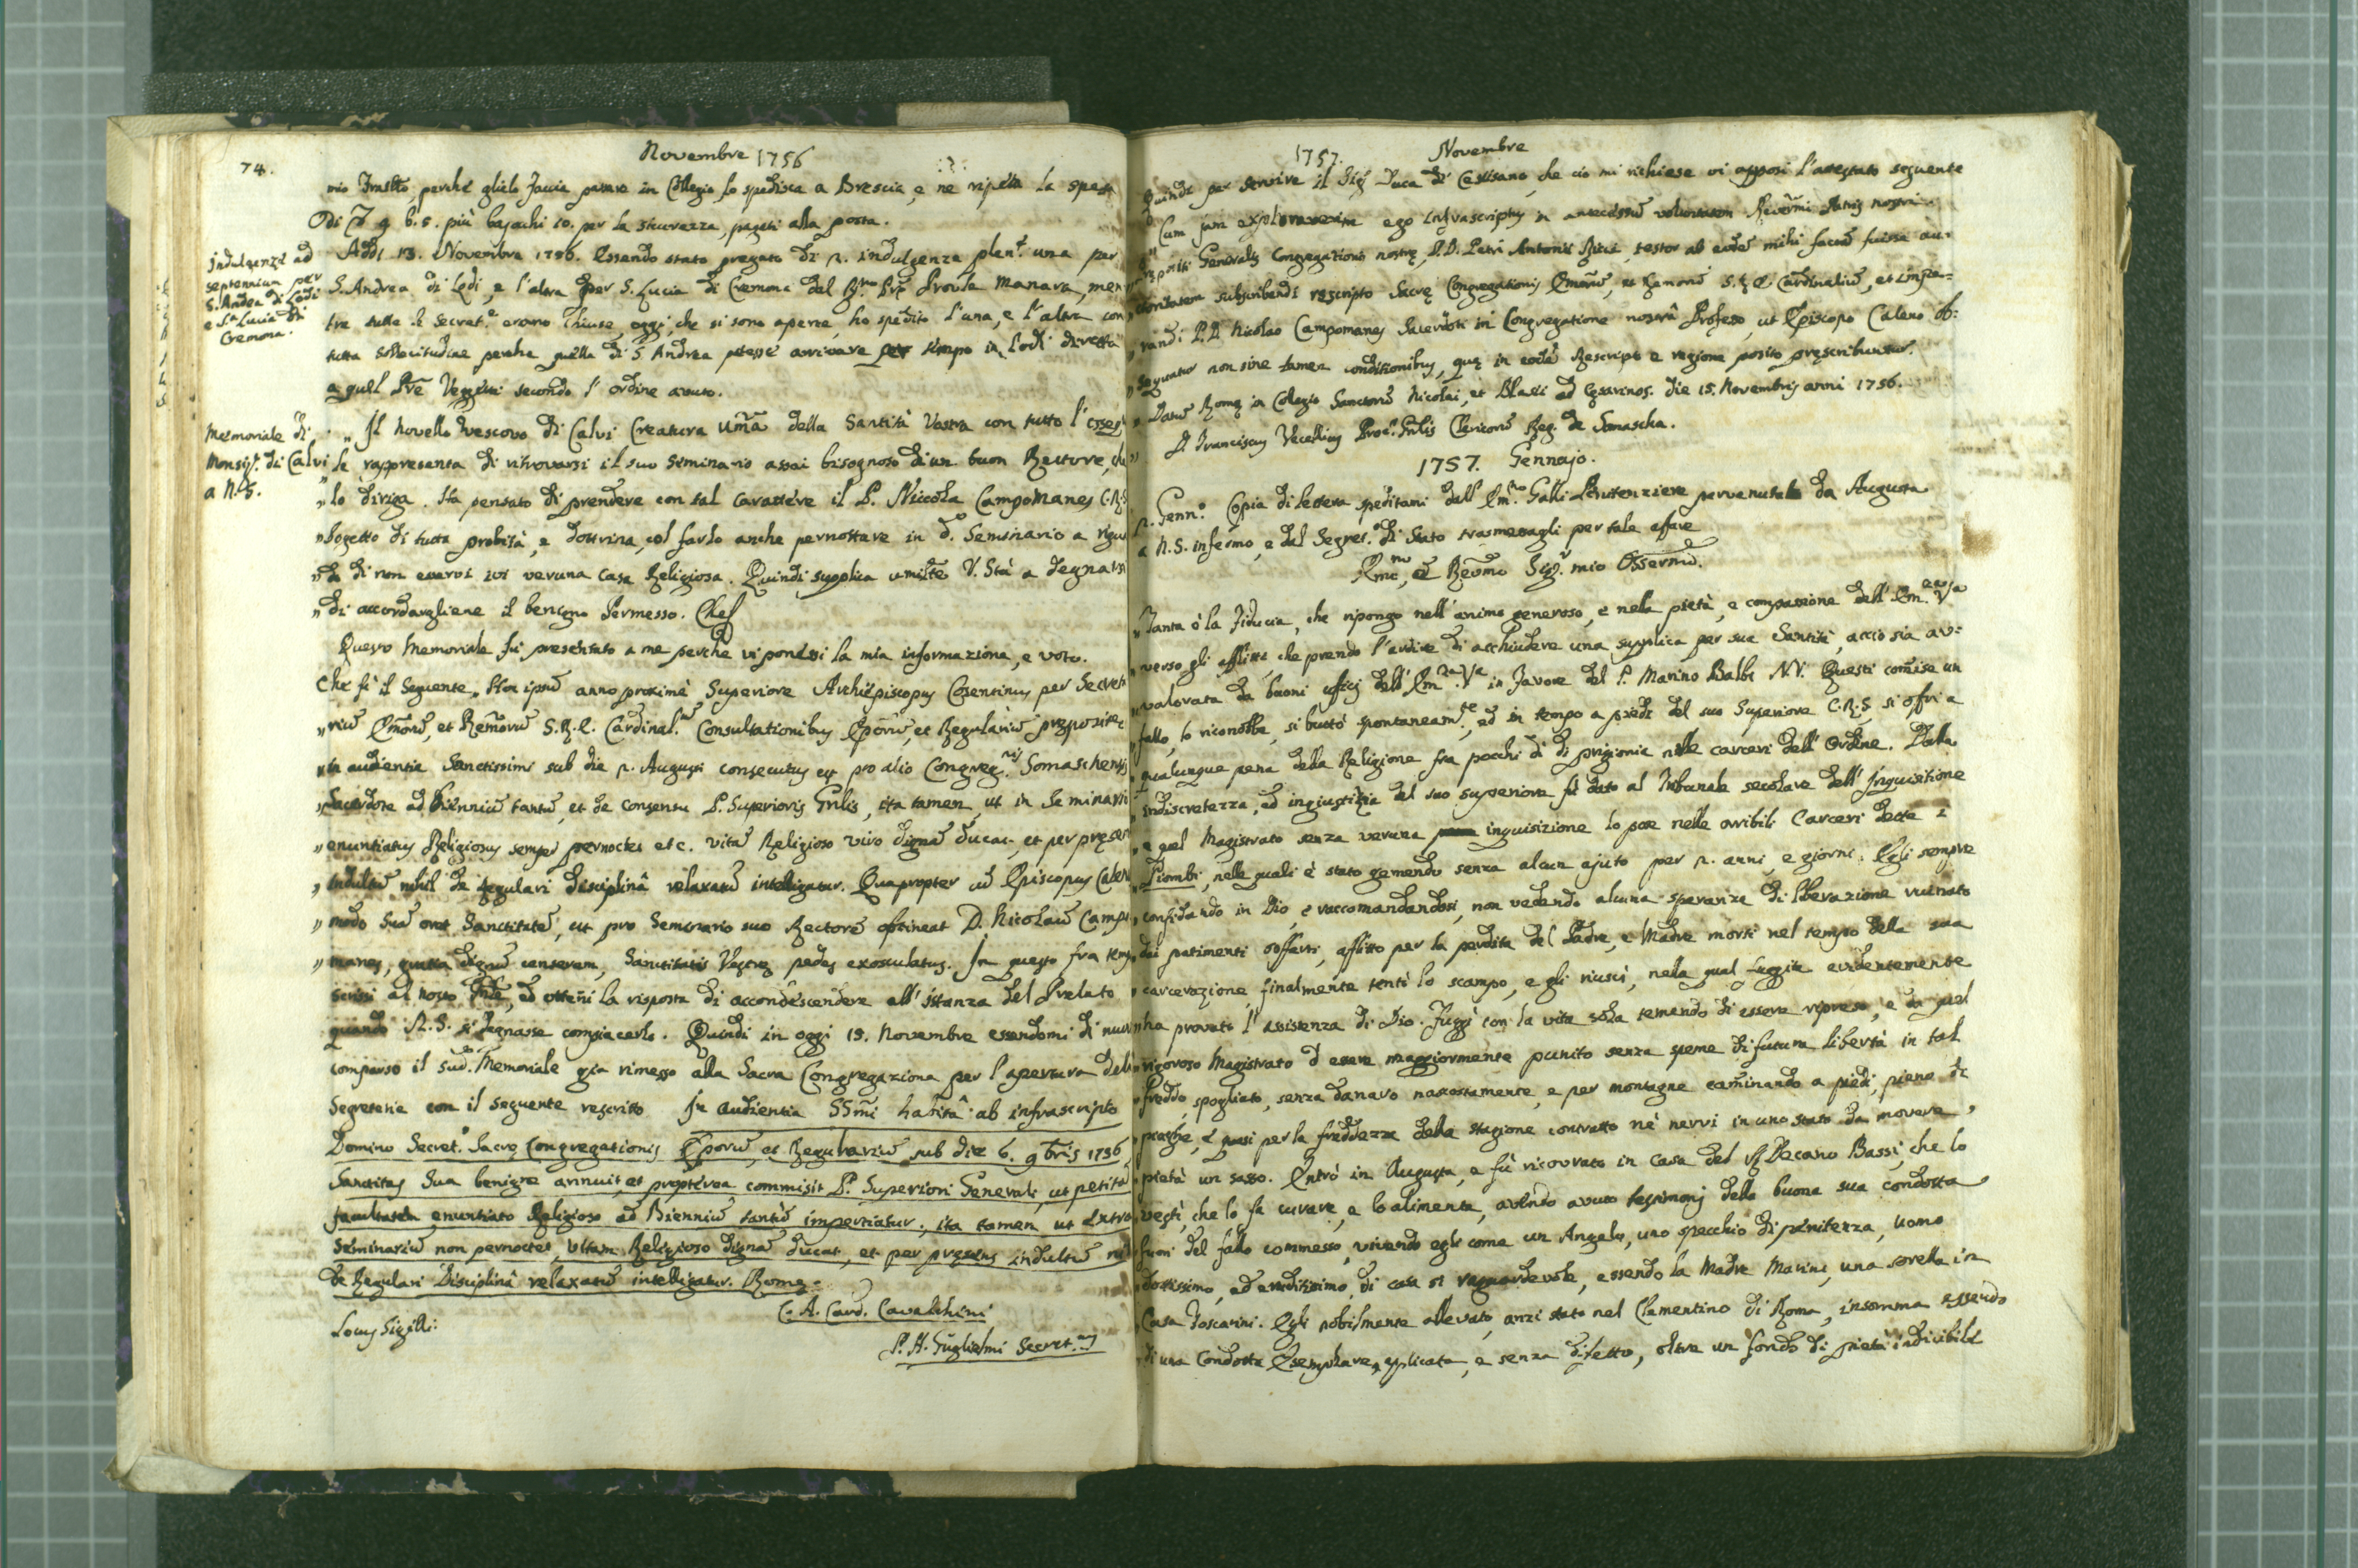 74.
Novembre 1756
mio fratello, perché glielo faccia passare in Collegio lo spedisca a Brescia, e ne ripeta la spesa
più bajochi 10. per la sicurezza, pagati alla posta.
Indulgenze ad
septennium per
S. Andrea di Lodi
e S.ta Lucia di
Cremona.
Addi 13. Novembre 1756. Essendo stato pregato di 2. indulgenze plen.e una per
S. Andrea di Lodi, e l'altra per S. Lucia di Cremona dal Pre Manara, men
tre tutte le Secret.e erano chiuse, oggi, che si sono aperte, ho spedito l'una, e l'altra con
tutta sollecitudine perche quella di S. Andrea potesse arrivare tempo in Lodi diretta
a quel Prē Vezzetti secondo l'ordine avuto.
Memoriale di
Monsig.r di Calvi
a N. S.
„ Il novello Vescovo di Calvi Creatura Um̃a della Santità Vostra con tutto l'
„ le rappresenta di ritrovarsi il suo Seminario assai bisognoso di un buon Rettore, che
„ lo diriga. Ha pensato di prendere con tal carattere il P. Niccola Campomanes C.R.S.
„ Sogetto di tutta probità, e dottrina, col farlo anche pernottare in d.o Seminario a
„ di non esservi ivi veruna casa Religiosa. Quindi supplica umilt̃e V. Stà a degnarsi
„ di accordargliene il benigno Permesso. Che
Questo Memoriale fu presentato a me perche vi ponessi la mia informazione, e voto.
Che fù il seguente „ Hoc ipsum anno proximè Superiore Archiepiscopus Cosentinus per Secreta
„ rium Em̃orū, et Rem̃orū S.R.E. Cardinal. Consultationibus Ep̃orū, et Regulariū prepositū
„ in audientia Sanctissimi sub die 2. Augusti consecutus est pro alio Congreg.nis Somaschensis
„ Sacerdote ad Biennium tantū, et de consensu P. Superioris Gñlis, ita tamen, ut in Seminario
„ enuntiatus Religiosus semper pernoctet etc. vitā Religioso viro dignā ducat, et per presens
„ Indultū nihil de regulari disciplinâ relaxatū intelligatur. Quapropter cū Episcopus Calen
„ modo Suā oret Sanctitatē, ut pro Seminario suo Rectorē obtineat D. Nicolaū Campo
„ manes, gratiā dignū censerem, Sanctitatis Vestrę pedes exosculatus. In questo fra tempo
scrissi al nostro Gñle, ed ottenni la risposta di accondescendere all'istanza del Prelato
quando N.S. si degnasse compiacerlo. Quindi in oggi 15. Novembre essendomi di nuovo
comparso il sud.o Memoriale gia rimesso alla Sacra Congregazione per l'apertura della
Segreteria con il seguente rescritto In audientia SSm̃i habitâ ab infrascripto
Domino Secret.o Sacrę Congregationis Ep̃orū, et Regulariū sub die 6. 9bris 1756
Sanctitas Sua benigne annuit, et propterea commisit P. Superiori Generali, ut petitā
facultatem enuntiato Religioso ad Bienniū tantū impertiatur, ita tamen ut extra
Seminariū non pernoctet, vitam Religioso dignā ducat, et per presens indultū nihil
de Regulari Disciplinâ relaxatū intelligatur. Romę
C. A. Card. Cavalchini
Locus Sigilli:
P. A. Guglielmi Secret.
1757. Novembre
Quindi per servire il Sig.r Duca di Castisano, che ciò mi richiese vi apposi l'attestato seguente
„ Cum jam exploraverim ego infrascriptus in antecessum voluntatem Reverm̃i Patris nostri
„ Prepositi Generalis Congregationis nostrę, P.D. Petri Antonii Ricci, testor ab eodē mihi factā fuisse au-
„ ctoritatem subscribendi rescripto Sacrę Congregationis Em̃orū, ac Rem̃orū S.R.E. Cardinaliū, et imper-
„ tiandi P.D. Nicolao Campomanes Sacerdoti in Congregatione nostrâ Professo, ut Episcopo Caleno ob-
„ sequatur non sine tamen conditionibus, quę in eodē Rescripto e regione posito prescribuntur.
„ Datū Romę in Collegio Sanctorū Nicolai, et Blasii ad Cesarinos. die 15. Novembris anni 1756.
„ D. Franciscus Vecellius Proc.r Gñlis Clericorū Reg. de Somascha.
1757. Gennajo.
2. Genn.o Copia di lettera speditami dall'Em.mo Galli Penitenziere pervenutale da Augusta
a N.S. infermo, e dal Segret.o di Stato trasmessagli per tale affare
Em.mo, e Revm̃o Sig.r mio Osservm̃o.
„ Tanta è la fiducia, che ripongo nell'animo generoso, e nella pietà, e compassione dell'Em.za V.a
„ verso gli afflitti, che prendo l'ardire di acchiudere una supplica per sua Santità, acciò sia av-
„ valorata da buoni ufficj dell'Em.za V.a in favore del P. Marino Balbi N.V. Questi com̃ise un
„ fallo, lo riconobbe, si buttò spontaneam.te, ed in tempo a piedi del suo Superiore C.R.S. si offrì a
„ qualunque pena della Religione fra pochi dì di prigionia nelle carceri dell'Ordine. Dalla
„ indiscretezza, ed ingiustizia del suo superiore fù dato al Tribunale secolare dell'Inquisitione
„ e quel Magistrato senza veruna inquisizione lo pose nelle orribili Carceri dette i
„ Piombi, nelle quali è stato gemendo senza alcun ajuto per 2. anni, e giorni. Egli sempre
„ confidando in Dio, e raccomandandosi, non vedendo alcuna speranza di liberazione ruinato
„ dai patimenti sofferti, afflitto per la perdita del Padre, e Madre morti nel tempo della sua
„ carcerazione, finalmente tentò lo scampo, e gli riuscì, nella qual fuggita evidentemente
„ ha provato l'assistenza di Dio. Fuggì con la vita sola temendo di essere ripreso, e da quel
„ rigoroso Magistrato d'essere maggiormente punito senza speme di futura libertà in tal
„ freddo, spogliato, senza danaro nascostamente, e per montagne cam̃inando a piedi, pieno di
„ piaghe, e quasi per la freddezza della stagione contratto nè nervi in uno stato da movere
„ pietà un sasso. Entrò in Augusta, e fù ricovrato in Casa del Decano Bassi, che lo
„ vestì, che lo fa curare, e lo alimenta, avendo avuto testimonj della buona sua condotta
„ fuori del fallo commesso, vivendo egli come un Angelo, uno specchio di penitenza, uomo
„ dottissimo, ed eruditissimo, di casa sì raguardevole, essendo la Madre Marini, una sorella in
„ Casa Foscarini. Egli nobilmente allevato, anzi stato nel Clementino di Roma, insomma essendo
„ di una Condotta Esemplare, applicata, e senza difetto, oltre un fondo di pietà indicibile